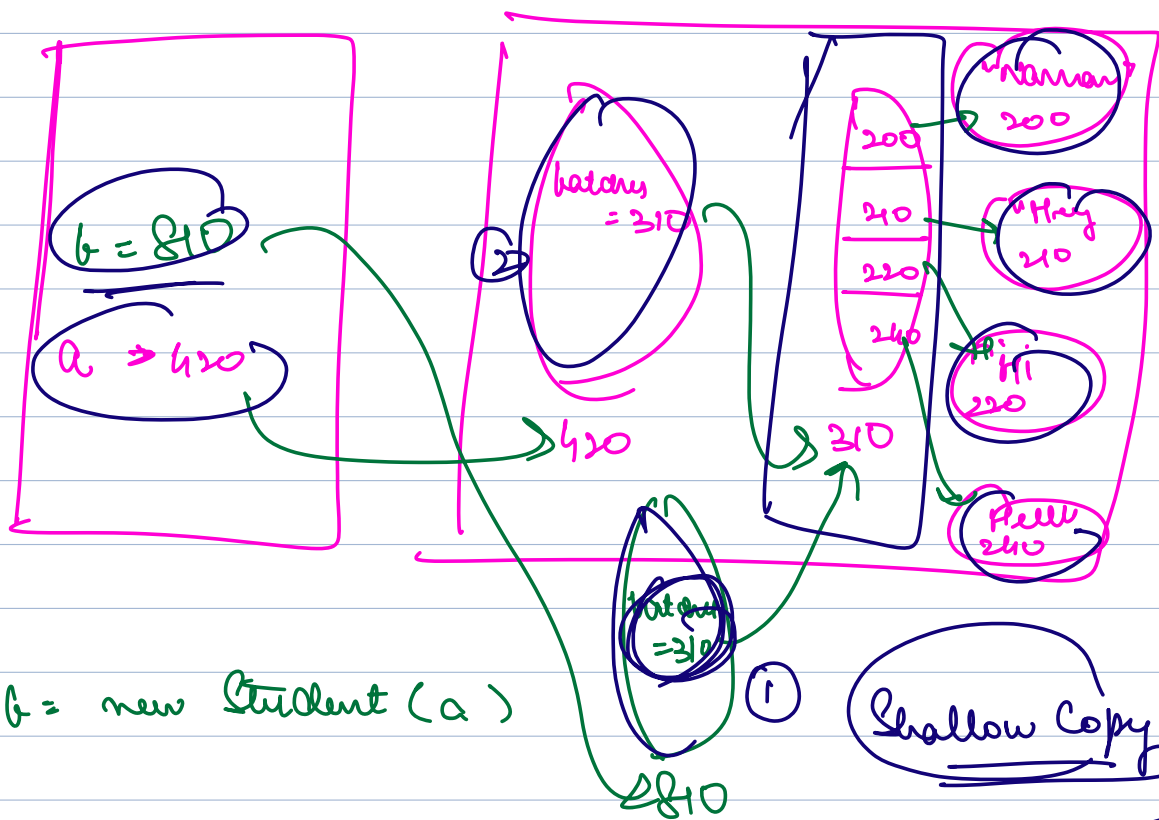 b = 810
a → 420
batches
= 310
2
420
200
210
220
240
310
"Naman"
200
"Hey
210
Hi
220
Hello
240
batches
= 310
1
810
b = new Student (a)
Shallow Copy